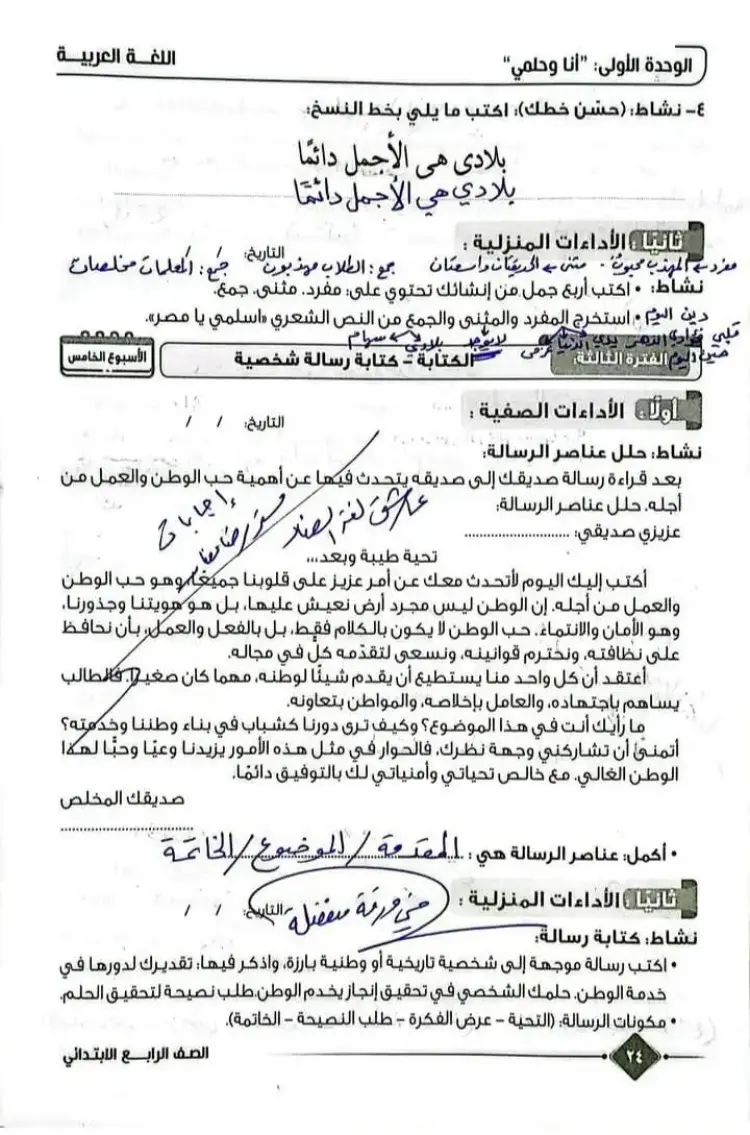 الوحدة الأولى: "أنا وحلمي"
اللغة العربية
٤- نشاط: (حسّن خطك): اكتب ما يلي بخط النسخ:
بلادى هى الأجمل دائمًا
بلادي هي الأجمل دائمًا
ثانيًا: الأداءات المنزلية :
التاريخ: / /
مفرد المهذب محبوب - مثنى الحديقتان واسعتان جمع: الطلاب مهذبون جمع: المعلمات مخلصات
نشاط: • اكتب أربع جمل من إنشائك تحتوي على: مفرد. مثنى. جمع.
• استخرج المفرد والمثنى والجمع من النص الشعري «اسلمي يا مصر».
دين اليوم
قلبي
لا يوجد بلادي سهام
الفترة الثالثة:
الكتابة - كتابة رسالة شخصية
الأسبوع الخامس
أولًا: الأداءات الصفية :
التاريخ: / /
نشاط: حلل عناصر الرسالة:
بعد قراءة رسالة صديقك إلى صديقه يتحدث فيها عن أهمية حب الوطن والعمل من
أجله. حلل عناصر الرسالة:
عاشق لغة الضاد
إجابات
عزيزي صديقي: ..............................
تحية طيبة وبعد...
أكتب إليك اليوم لأتحدث معك عن أمر عزيز على قلوبنا جميعًا، وهو حب الوطن
والعمل من أجله. إن الوطن ليس مجرد أرض نعيش عليها، بل هو هويتنا وجذورنا،
وهو الأمان والانتماء. حب الوطن لا يكون بالكلام فقط، بل بالفعل والعمل، بأن نحافظ
على نظافته، ونحترم قوانينه، ونسعى لتقدّمه كلٌّ في مجاله.
أعتقد أن كل واحد منا يستطيع أن يقدم شيئًا لوطنه، مهما كان صغيرًا. فالطالب
يساهم باجتهاده، والعامل بإخلاصه، والمواطن بتعاونه.
ما رأيك أنت في هذا الموضوع؟ وكيف ترى دورنا كشباب في بناء وطننا وخدمته؟
أتمنى أن تشاركني وجهة نظرك، فالحوار في مثل هذه الأمور يزيدنا وعيًا وحبًّا لهذا
الوطن الغالي. مع خالص تحياتي وأمنياتي لك بالتوفيق دائمًا.
صديقك المخلص
..............................
• أكمل: عناصر الرسالة هي: المقدمة / الموضوع / الخاتمة
ثانيًا: الأداءات المنزلية :
التاريخ: / /
في ورقة منفصلة
نشاط: كتابة رسالة:
• اكتب رسالة موجهة إلى شخصية تاريخية أو وطنية بارزة، واذكر فيها: تقديرك لدورها في
خدمة الوطن. حلمك الشخصي في تحقيق إنجاز يخدم الوطن. طلب نصيحة لتحقيق الحلم.
• مكونات الرسالة: (التحية – عرض الفكرة – طلب النصيحة – الخاتمة).
٢٤
الصف الرابع الابتدائي